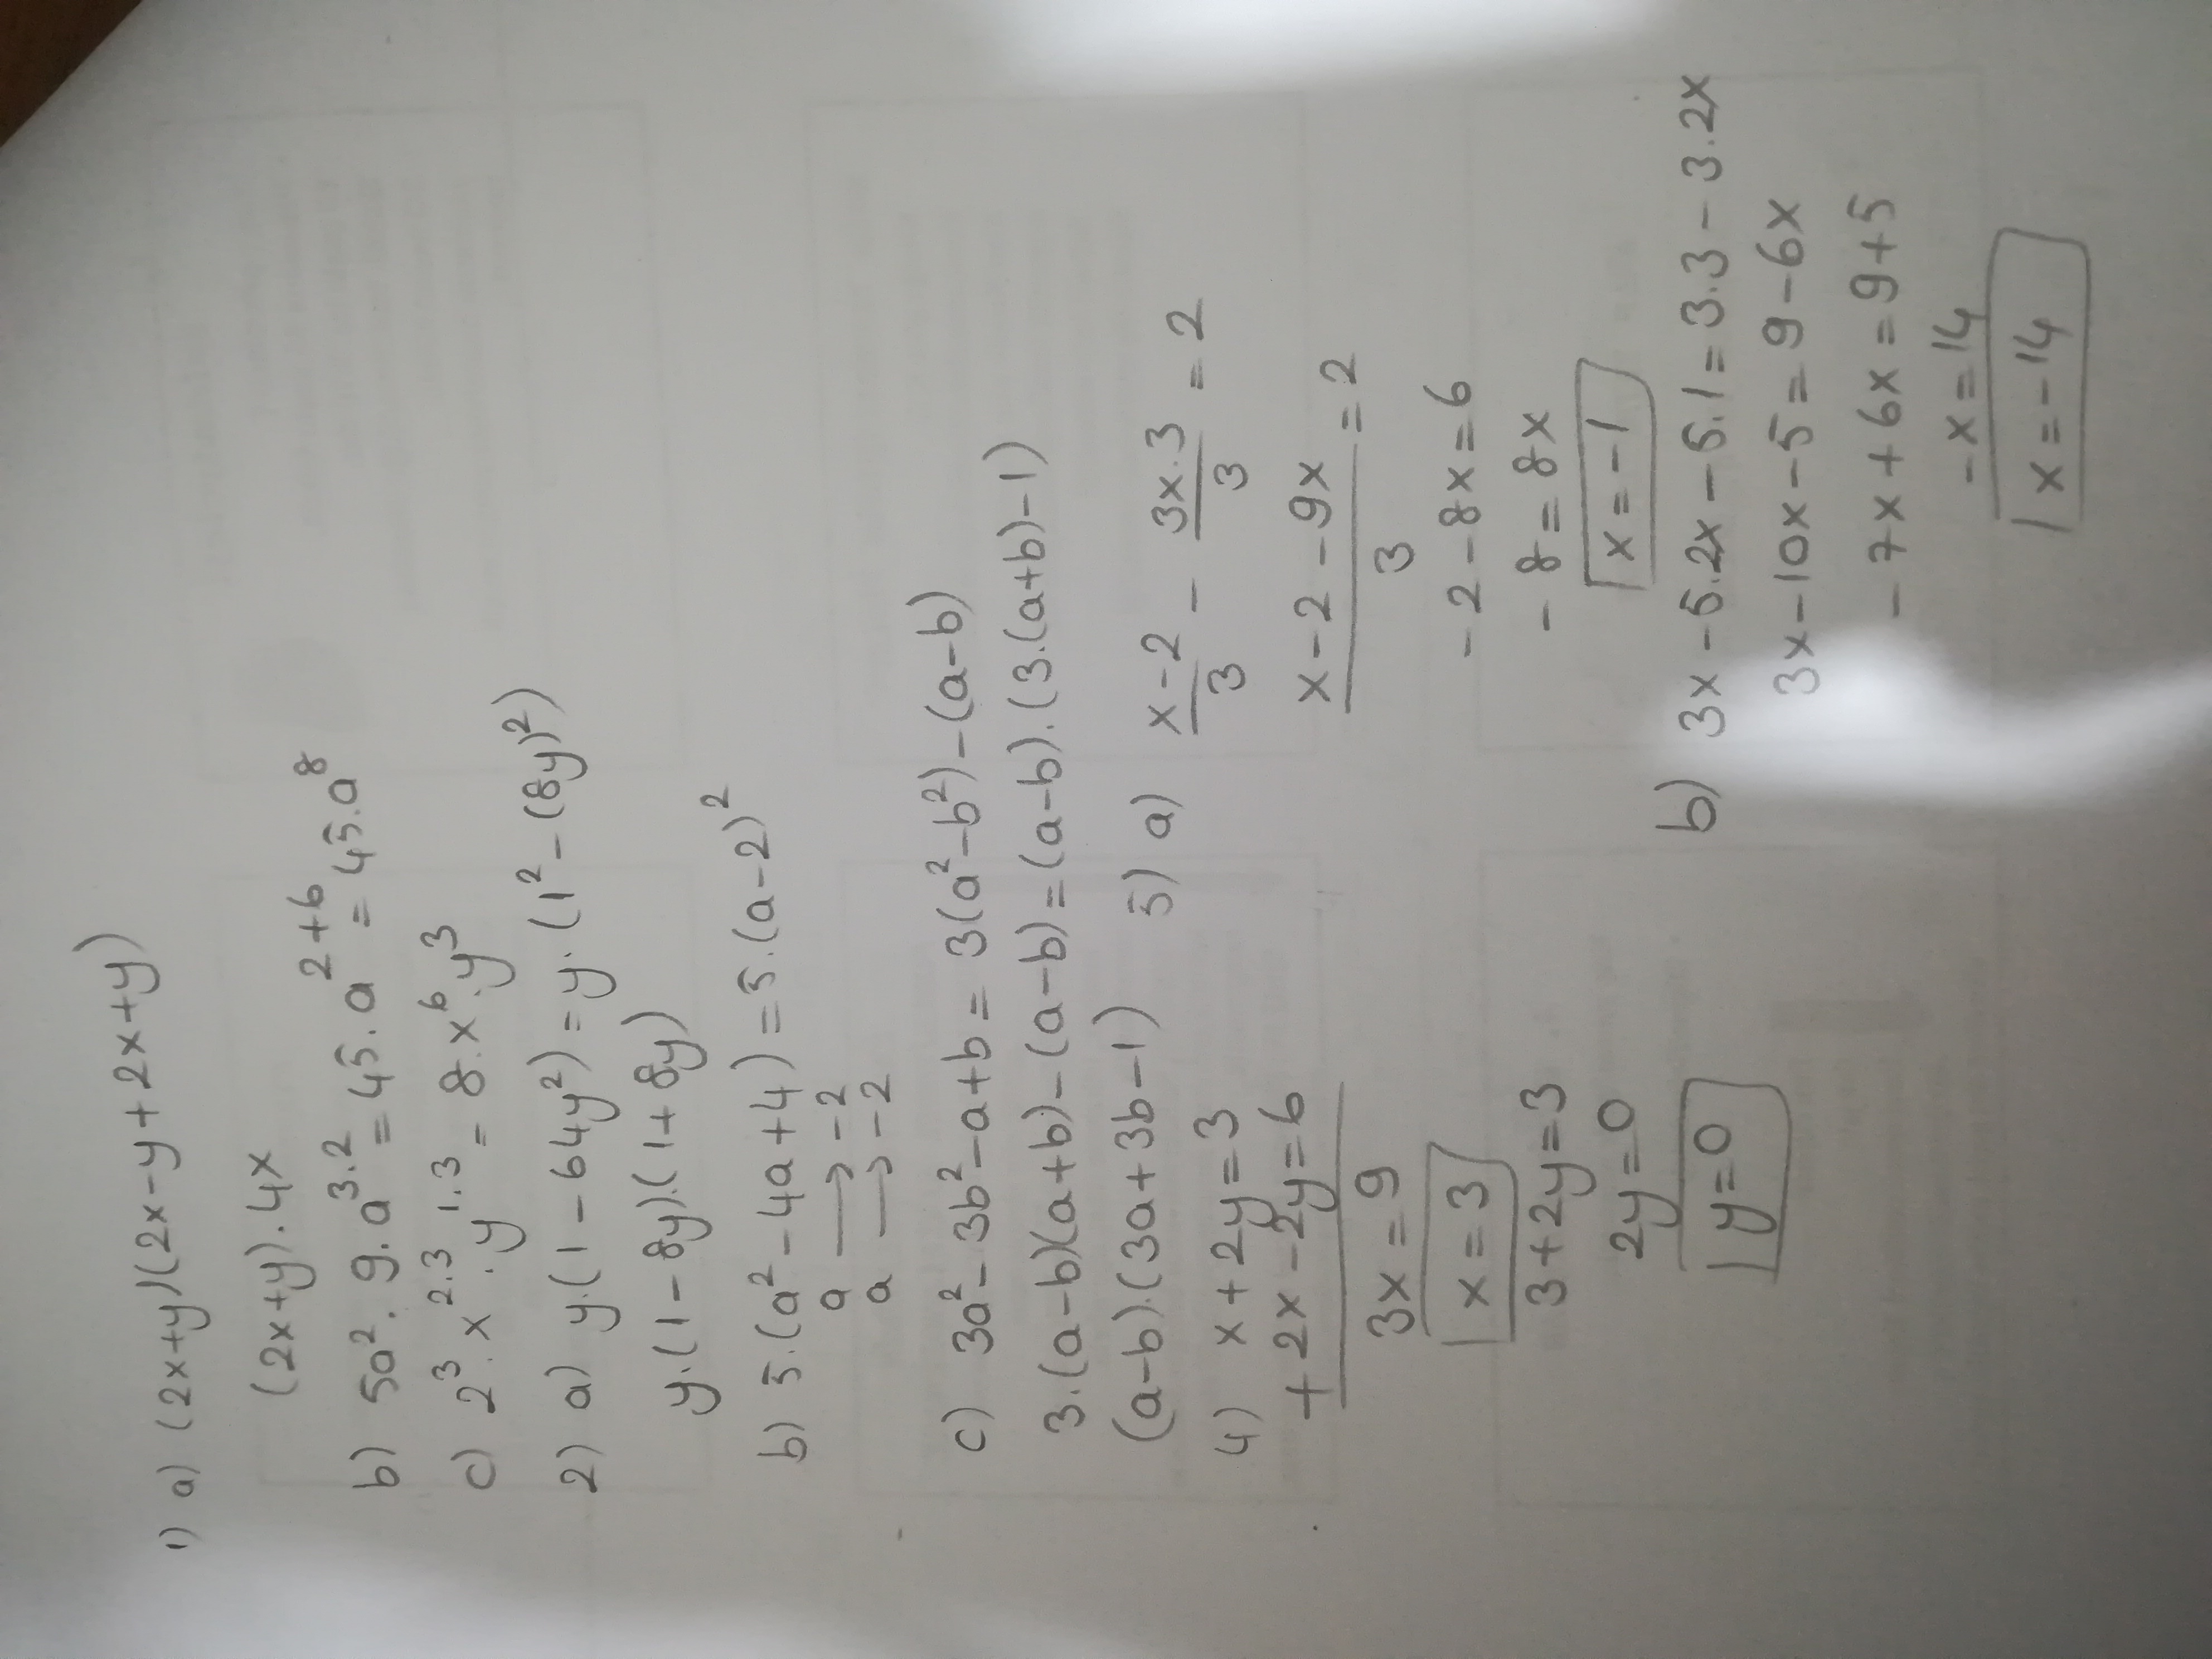 1) a) (2x+y)(2x-y+2x+y)
(2x+y).4x
b) 5a².9.a³·² = 45.a²⁺⁶ = 45.a⁸
c) 2³.x²·³.y¹·³ = 8.x⁶.y³
2) a) y.(1-64y²) = y.(1²-(8y)²)
y.(1-8y).(1+8y)
b) 5.(a²-4a+4) = 5.(a-2)²
a → -2
a → -2
c) 3a²-3b²-a+b = 3(a²-b²)-(a-b)
3.(a-b)(a+b)-(a-b) = (a-b).(3.(a+b)-1)
(a-b).(3a+3b-1)
4) x+2y=3
+ 2x-2y=6
3x=9
x=3
3+2y=3
2y=0
y=0
5) a) x-2/3 - 3x.3/3 = 2
x-2-9x/3 = 2
-2-8x=6
-8=8x
x=-1
b) 3x-5.2x-5.1=3.3-3.2x
3x-10x-5=9-6x
-7x+6x=9+5
-x=14
x=-14